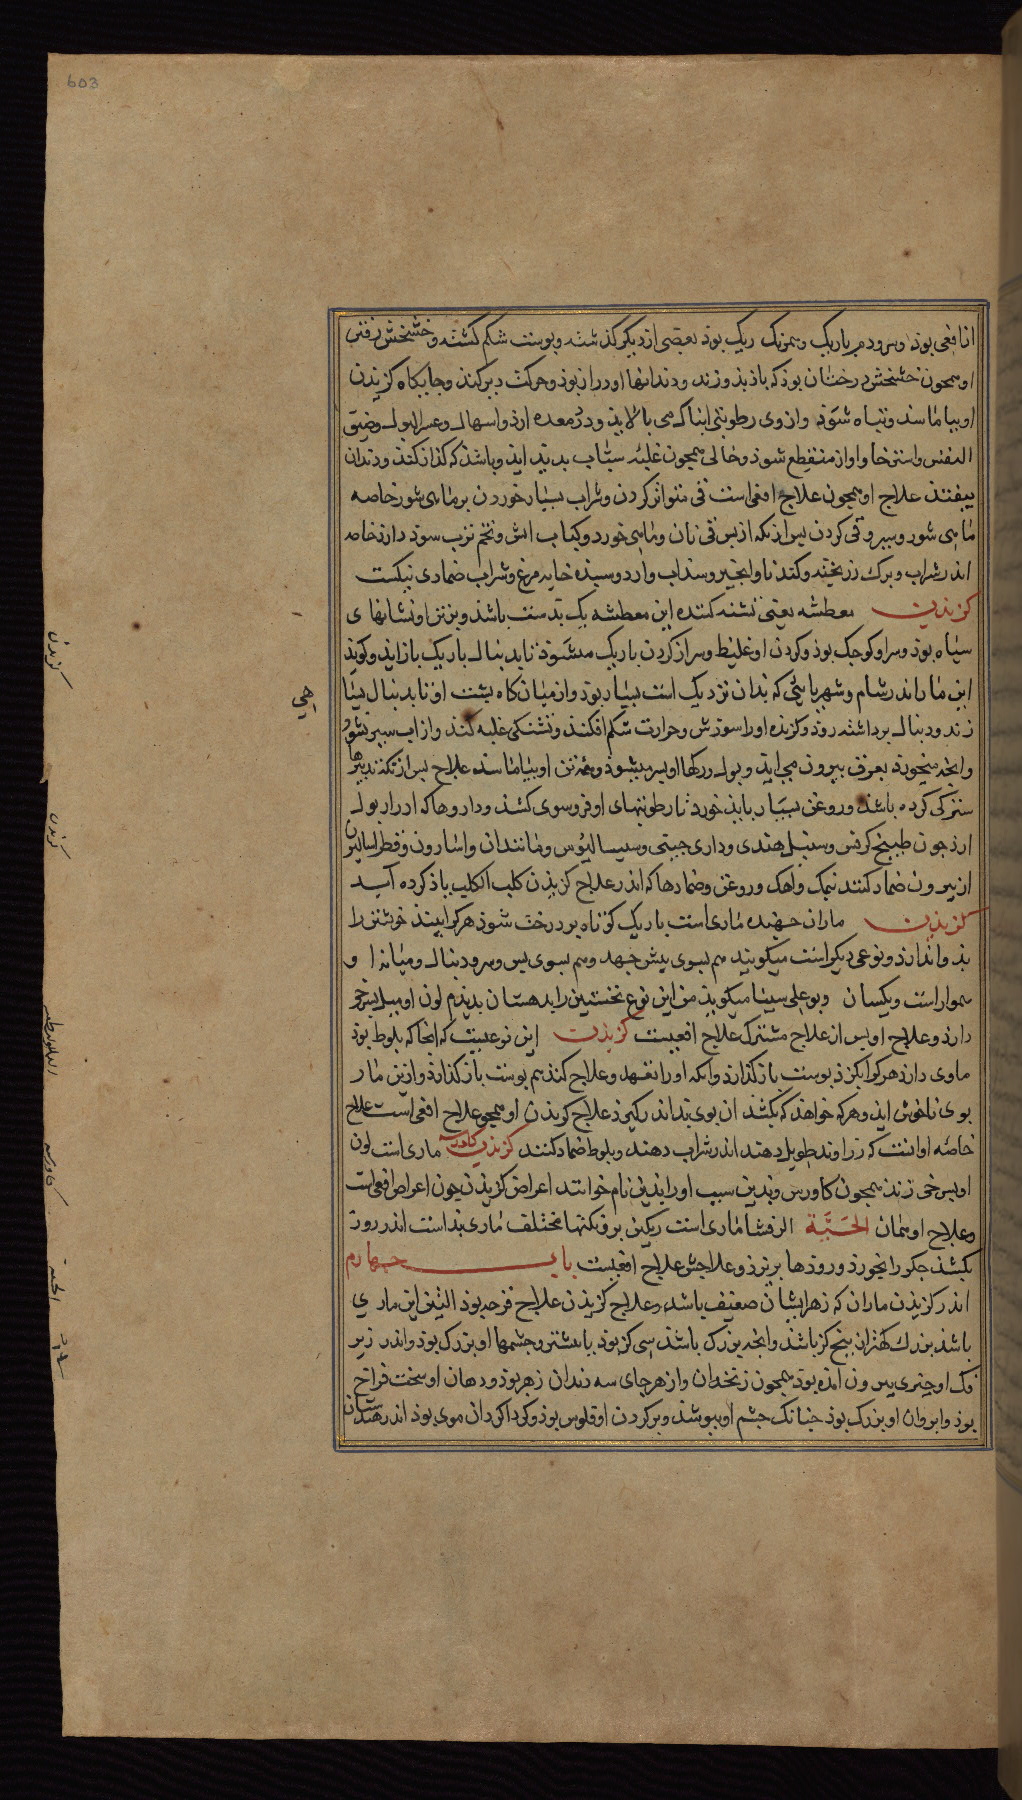 603
از افعی بوذ وسر ودم باریک وهمرنک ریک بوذ بعضی از دیگر کذشته وبوست شکم کشته وخشخش رفتن
او همجون خشخش درختان بوذ که باذ بذو زند ودندانها او دراز بوذ وحرکت دیر کند وجایکاه کزیذن
او بیاماسد وتباه شوذ واز وی رطوبتی ابناک می بالایذ ودرد معده ارذ واسهال وعسر البول وضیق
النفس واسترخا واواز منقطع شوذ وحالی همجون علیه سبات بدید ایذ وباشذ که کذاز کند ودندان
بیفتذ علاج او همجون علاج افعی است قی متواتر کردن وشراب بسیار خوردن بر ماهی شور خاصه
ماهی شور وسیر وقی کردن پس از نکه از بس قی نان وماهی خورد وکباب اتش وتخم ترب سوذ دارد خاصه
اندر شراب وبرک زر بخته وکندنا وانجیر وسنداب وارد وسبیذه خایه مرغ وشراب ضمادی نیکست
کزیذن معطشه یعنی تشنه کننده این معطشه یک بدست باشذ وبر تن او نشانهای
سیاه بوذ وسر او کوجک بوذ وکردن او غلیظ وسر از کردن باریک میشوذ تا بدنبال باریک باز ایذ وکویند
این مار اندر شام وشهرهائی که بدان نزدیک است بسیار بوذ واز میان کاه بشت او تا بدنبال سیا
زند ودنبال برداشته روذ وکزنده او را سوزش وحرارت شکم افکند وتشنکی غلبه کند واز اب سیر نشوذ
وانجه میخورذ بعرق بیرون می ایذ وبول در رکها او بر میشوذ وهمه تن او بیاماسد علاج پس از نکه تدبیرها
ستزکی کرده باشذ وروغن بسیار بایذ خورد تا رطوبتهای او فروسوی کشذ وداروها که ادرار بول
ارذ جون طبیخ کرفس وسنبل هندی ودارجینی وسیسالیوس ومانندان واسارون وفطراسالیون
از بیرون ضماد کنند نمک واهک وروغن وضمادها که اندر علاج کزیذن کلب الکلب یاذ کرده آید
کزیذن ماران جهنده ماری است باریک کوتاه بر درخت شوذ هرکرا بیند خوشتن را
بذو اندازد ونوعی دیکر است میکویند هم بسوی پیش جهد وهم بسوی بس وسر ودنبال ومیانه او
هموار است ویکسان وبوعلی سینا میکویذ من این نوع نخستین را بدهستان بدیذم لون او میل بسرخی
دارذ وعلاج او بس از علاج مشترک علاج افعیست کزیذن این نوعیست که انجا که بلوط بوذ
ماوی دارذ هرکرا بکزذ بوست باز کذارد وانکه او را تعهد وعلاج کند هم بوست باز کذارذ واز ین مار
بوی ناخوش ایذ وهرکه خواهذ که بکشذ ان بوی بداند رکیرذ علاج کزیذن او همجو علاج افعی است علاج
خاصه او انست که زراوند طویل دهند اندر شراب دهند وبلوط ضماد کنند کزیذن کاورسه ماری است لون
او بسرخی زند همجون کاورس وبدین سبب او را بذین نام خوانند اعراض کزیذن جون اعراض افعی است
وعلاج او همان الحیّة الرقشا ماری است رنکین بر وی نکتها مختلف ماری بداست اندر روز
بکشذ جکر را بخورذ وروذها بریزذ وعلاجش علاج افعیست باب جهارم
اندر کزیذن ماران که زهر ایشان ضعیف باشد وعلاج کزیذن علاج قرحه بوذ التنین این ماری
باشذ بزرک کهتر ان بنج کز باشذ وانجه بزرک باشذ سی کز بوذ یا بیشتر وجشمها او بزرک بوذ واندر زیر
فک او جیزی بیرون امذه بوذ همجون زنخدان واز هر جای سه دندان زهر بوذ ودهان او سخت فراخ
بوذ وابروان او بزرک بوذ جنانک جشم او ببوشذ وبر کردن او فلوس بوذ وکرداکرد ان موی بوذ اندر هندستان